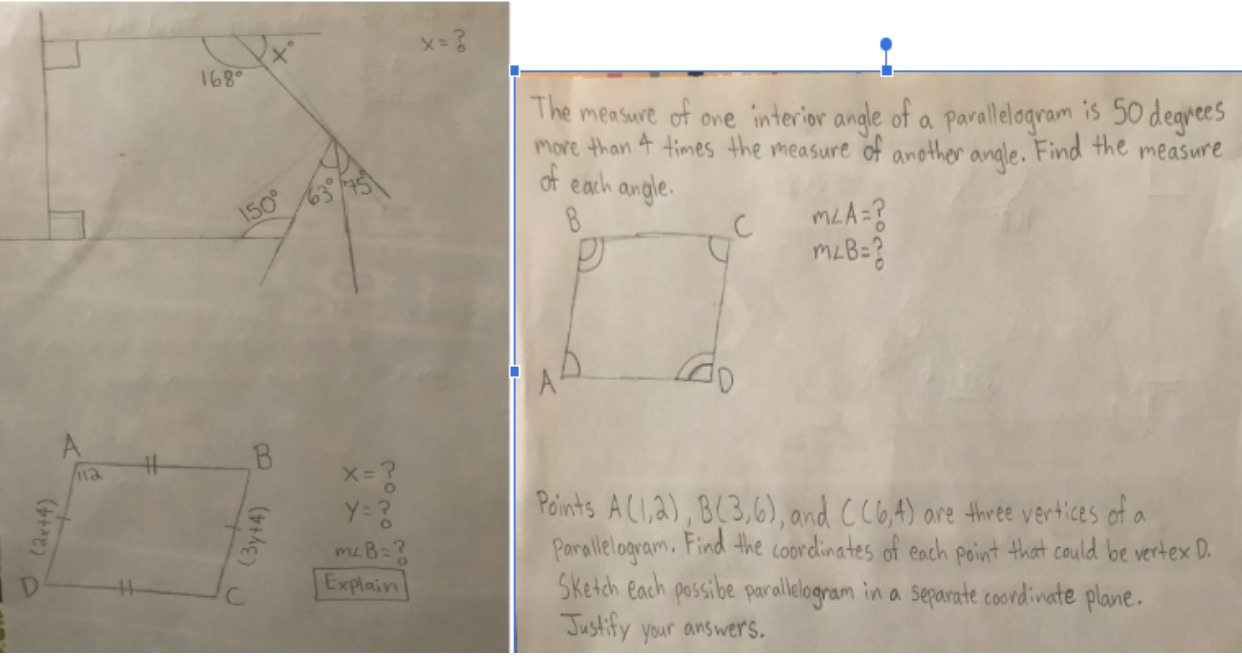 x = ?
168°
x°
150°
63°
75°
A
B
112
(2x+4)
(3y+4)
D
C
x = ?
y = ?
m∠B = ?
Explain
The measure of one interior angle of a parallelogram is 50 degrees
more than 4 times the measure of another angle. Find the measure
of each angle.
B
C
A
D
m∠A = ?
m∠B = ?
Points A(1,2), B(3,6), and C(6,4) are three vertices of a
parallelogram. Find the coordinates of each point that could be vertex D.
Sketch each possibe parallelogram in a separate coordinate plane.
Justify your answers.